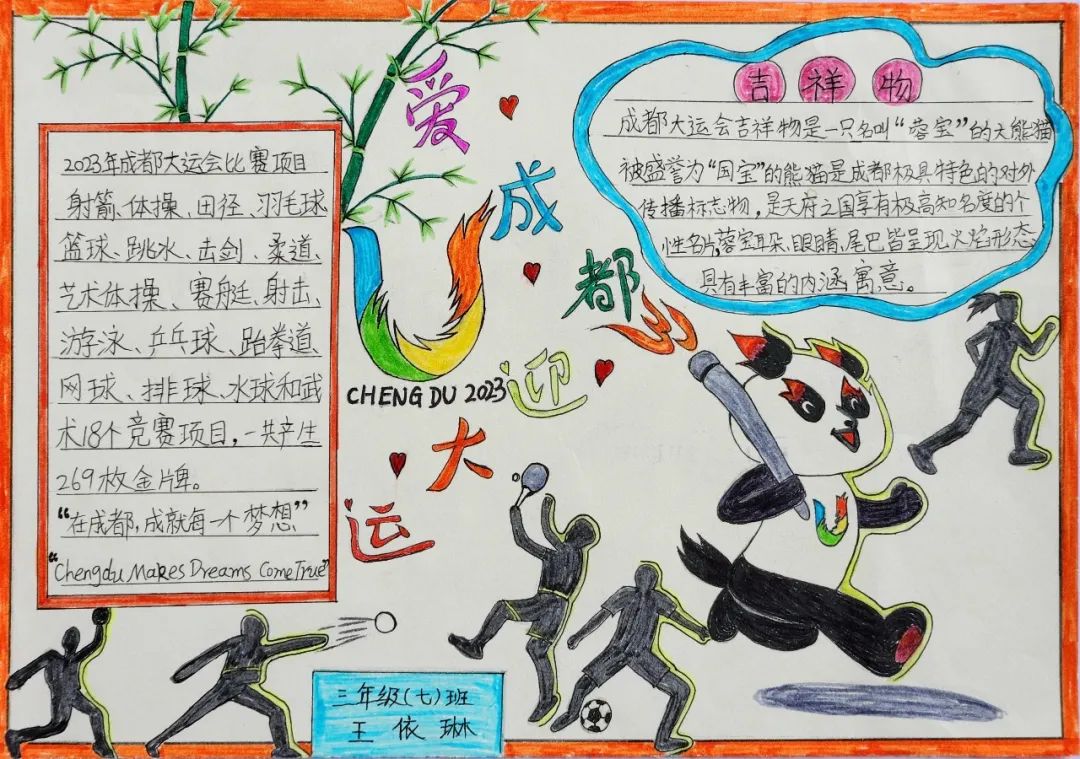 爱成都迎大运
CHENGDU 2023
2023年成都大运会比赛项目
射箭、体操、田径、羽毛球
篮球、跳水、击剑、柔道、
艺术体操、赛艇、射击、
游泳、乒乓球、跆拳道、
网球、排球、水球和武
术18个竞赛项目,一共产生
269枚金牌。
“在成都,成就每一个梦想”
“Chengdu Makes Dreams Come True”
吉祥物
成都大运会吉祥物是一只名叫“蓉宝”的大熊猫
被盛誉为“国宝”的熊猫是成都极具特色的对外
传播标志物,是天府之国享有极高知名度的个
性名片,蓉宝耳朵、眼睛、尾巴皆呈现火焰形态
具有丰富的内涵寓意。
三年级(七)班
王依琳